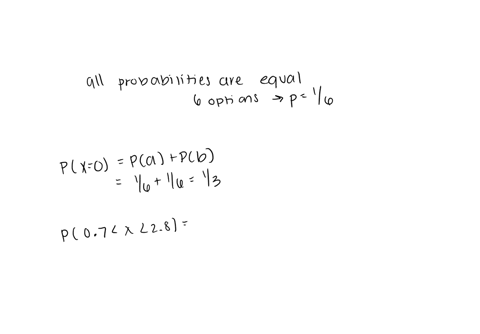 all probabilities are equal
6 options → p = 1/6
P(x=0) = P(a) + P(b)
= 1/6 + 1/6 = 1/3
P(0.7 < x < 2.8) =